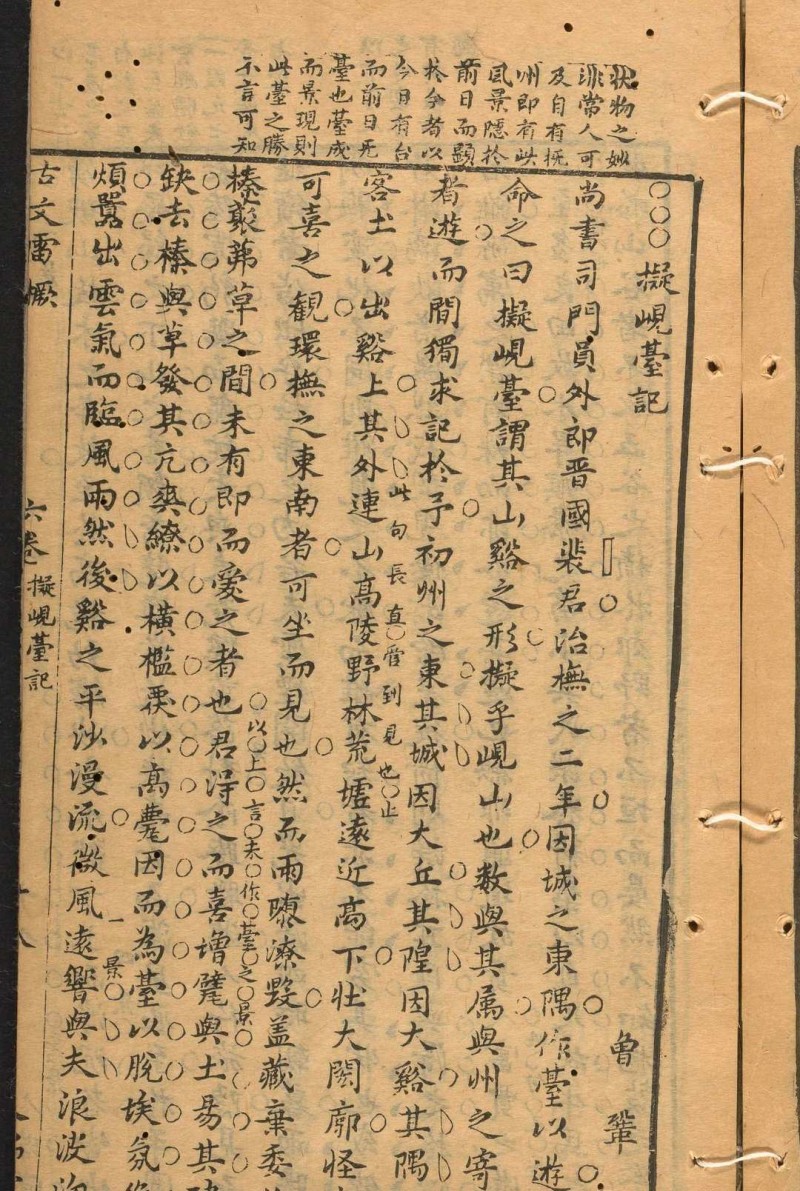 状物之妙
非常人可
及自有撫
州即有此
風景隱於
前日而顕
於今者以
今日有台
而前日无
臺也臺成
而景現則
此臺之勝
不言可知
○○○擬峴臺記
曾鞏
尚書司門員外郎晋國裴君治撫之二年因城之東隅作臺以遊
命之曰擬峴臺謂其山谿之形擬乎峴山也数與其属與州之寄
者遊而間獨求記於予初州之東其城因大丘其隍因大谿其隅
客土以出谿上其外連山高陵野林荒墟遠近高下壮大閎廓怪
此句長直管到見也止
可喜之観環撫之東南者可坐而見也然而雨隳潦毀盖藏棄委
榛叢茀草之間未有即而愛之者也君得之而喜増甓與土易其
以上言未作臺之景
缺去榛與草發其亢爽繚以横檻覆以高甍因而為臺以脫埃氛
煩囂出雲氣而臨風雨然後谿之平沙漫流微風遠響與夫浪波
一景
古文雷橛
六卷
擬峴臺記